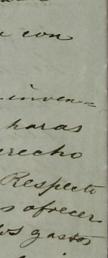 con
inven=
haras
erecho
Respecto
s ofrecer
los gastos